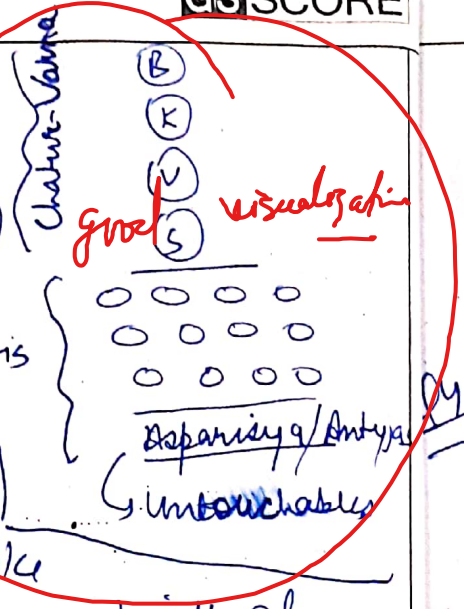 GS SCORE
Chatur-Varna
B
K
V
good visualization
S
is
Asparisya/Antyja
Untouchables